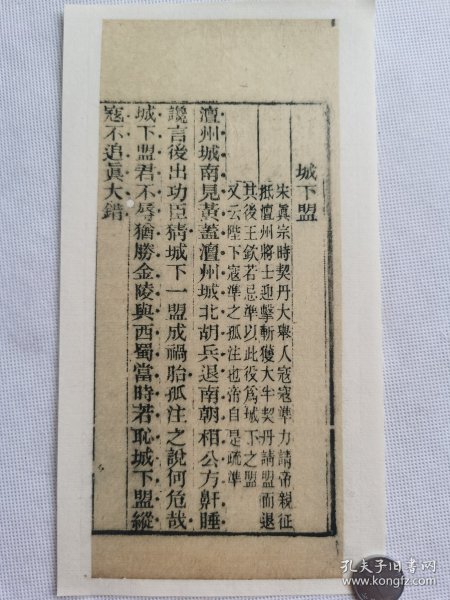 城下盟
宋眞宗時契丹大舉入寇寇準力請帝親征
抵澶州將士迎擊斬獲大半契丹請盟而退
其後王欽若忌準以此役爲城下之盟
又云陛下寇準之孤注也帝自是疏準
澶州城南見黃蓋澶州城北胡兵退南朝相公方鼾睡
讒言後出功臣猜城下一盟成禍胎孤注之說何危哉
城下盟君不辱猶勝金陵與西蜀當時若恥城下盟縱
寇不追眞大錯
孔夫子旧书网
www.kongfz.com